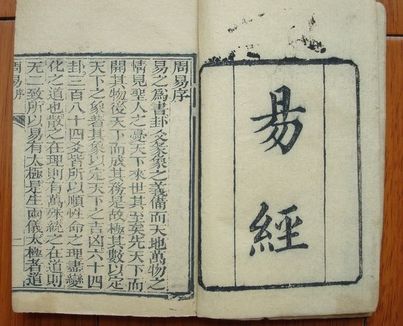 易經
周易序
易之為書卦爻彖象之義備而天地萬物之
情見聖人之憂天下來世其至矣先天下而
開其物後天下而成其務是故極其數以定
天下之象著其象以定天下之吉凶六十四
卦三百八十四爻皆所以順性命之理盡變
化之道也散之在理則有萬殊統之在道則
无二致所以易有太極是生兩儀太極者道
周易序
一